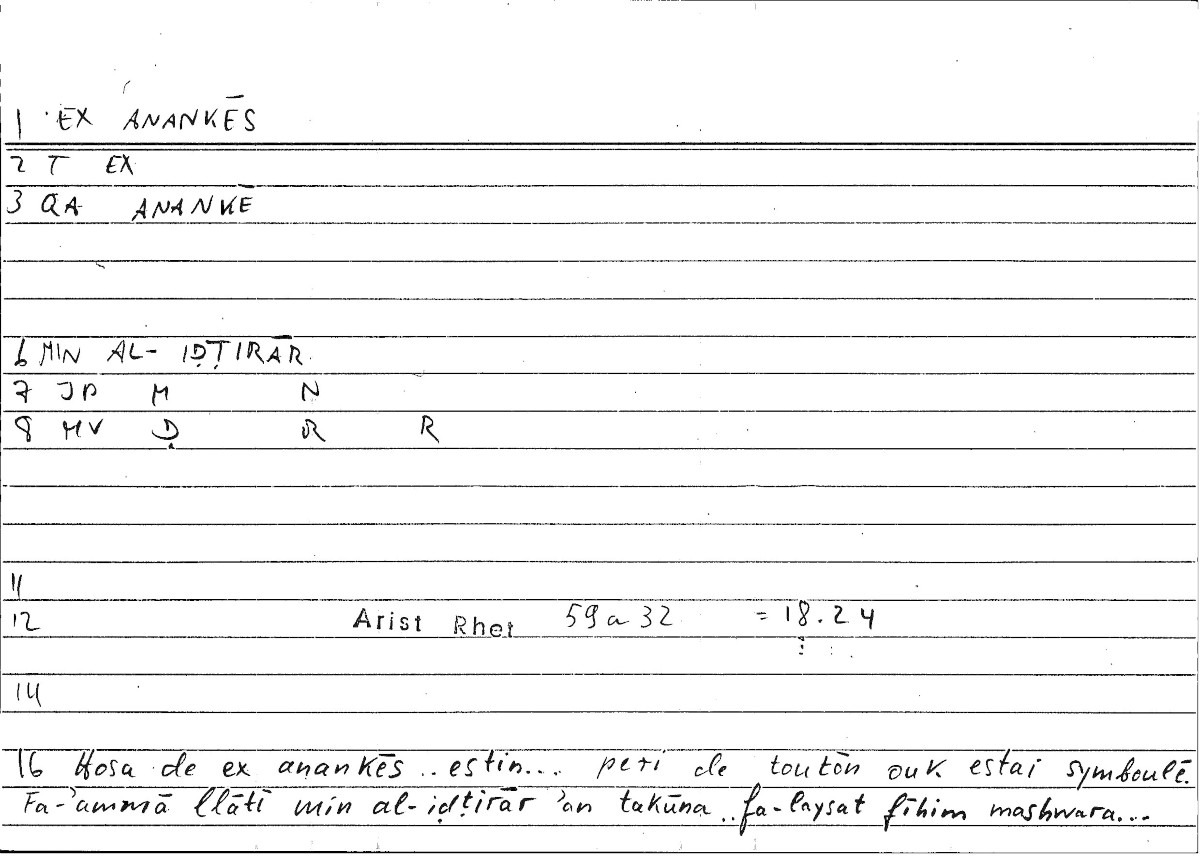 1 EX ANANKĒS
2 T EX
3 QA ANANKĒ
6 MIN AL- IḌṬIRĀR
7 JP M N
8 MV Ḍ R R
11
12 Arist Rhet 59a32 =18.24
14
16 Hosa de ex anankēs .. estin... peri de toutōn ouk estai symboulē.
Fa-'ammā llātī min al-iḍṭirār 'an takūna .. fa-laysat fīhim mashwara...